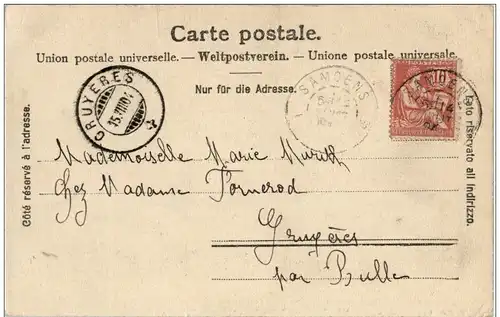 Carte postale.
Union postale universelle. — Weltpostverein. — Unione postale universale.
Nur für die Adresse.
Côté réservé à l'adresse.
Lato riservato all indirizzo.
GRUYERES
15.VIII.04
SAMOENS
10
SAMOENS
Mademoiselle Marie Murith
Chez Madame Tornerod
Gruyères
par Bulle